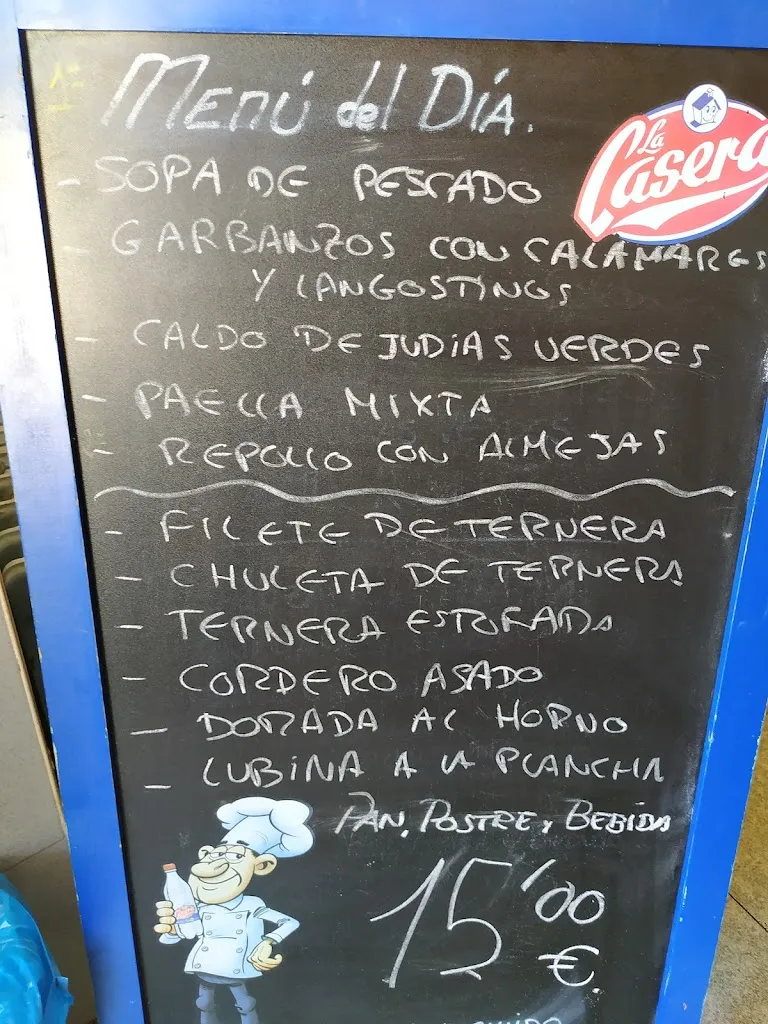 Menú del Día.
La Casera
- SOPA DE PESCADO
- GARBANZOS CON CALAMARES
Y LANGOSTINOS
- CALDO DE JUDÍAS VERDES
- PAELLA MIXTA
- REPOLLO CON ALMEJAS
- FILETE DE TERNERA
- CHULETA DE TERNERA
- TERNERA ESTOFADA
- CORDERO ASADO
- DORADA AL HORNO
- LUBINA A LA PLANCHA
PAN, POSTRE, Y BEBIDA
15'00
€.